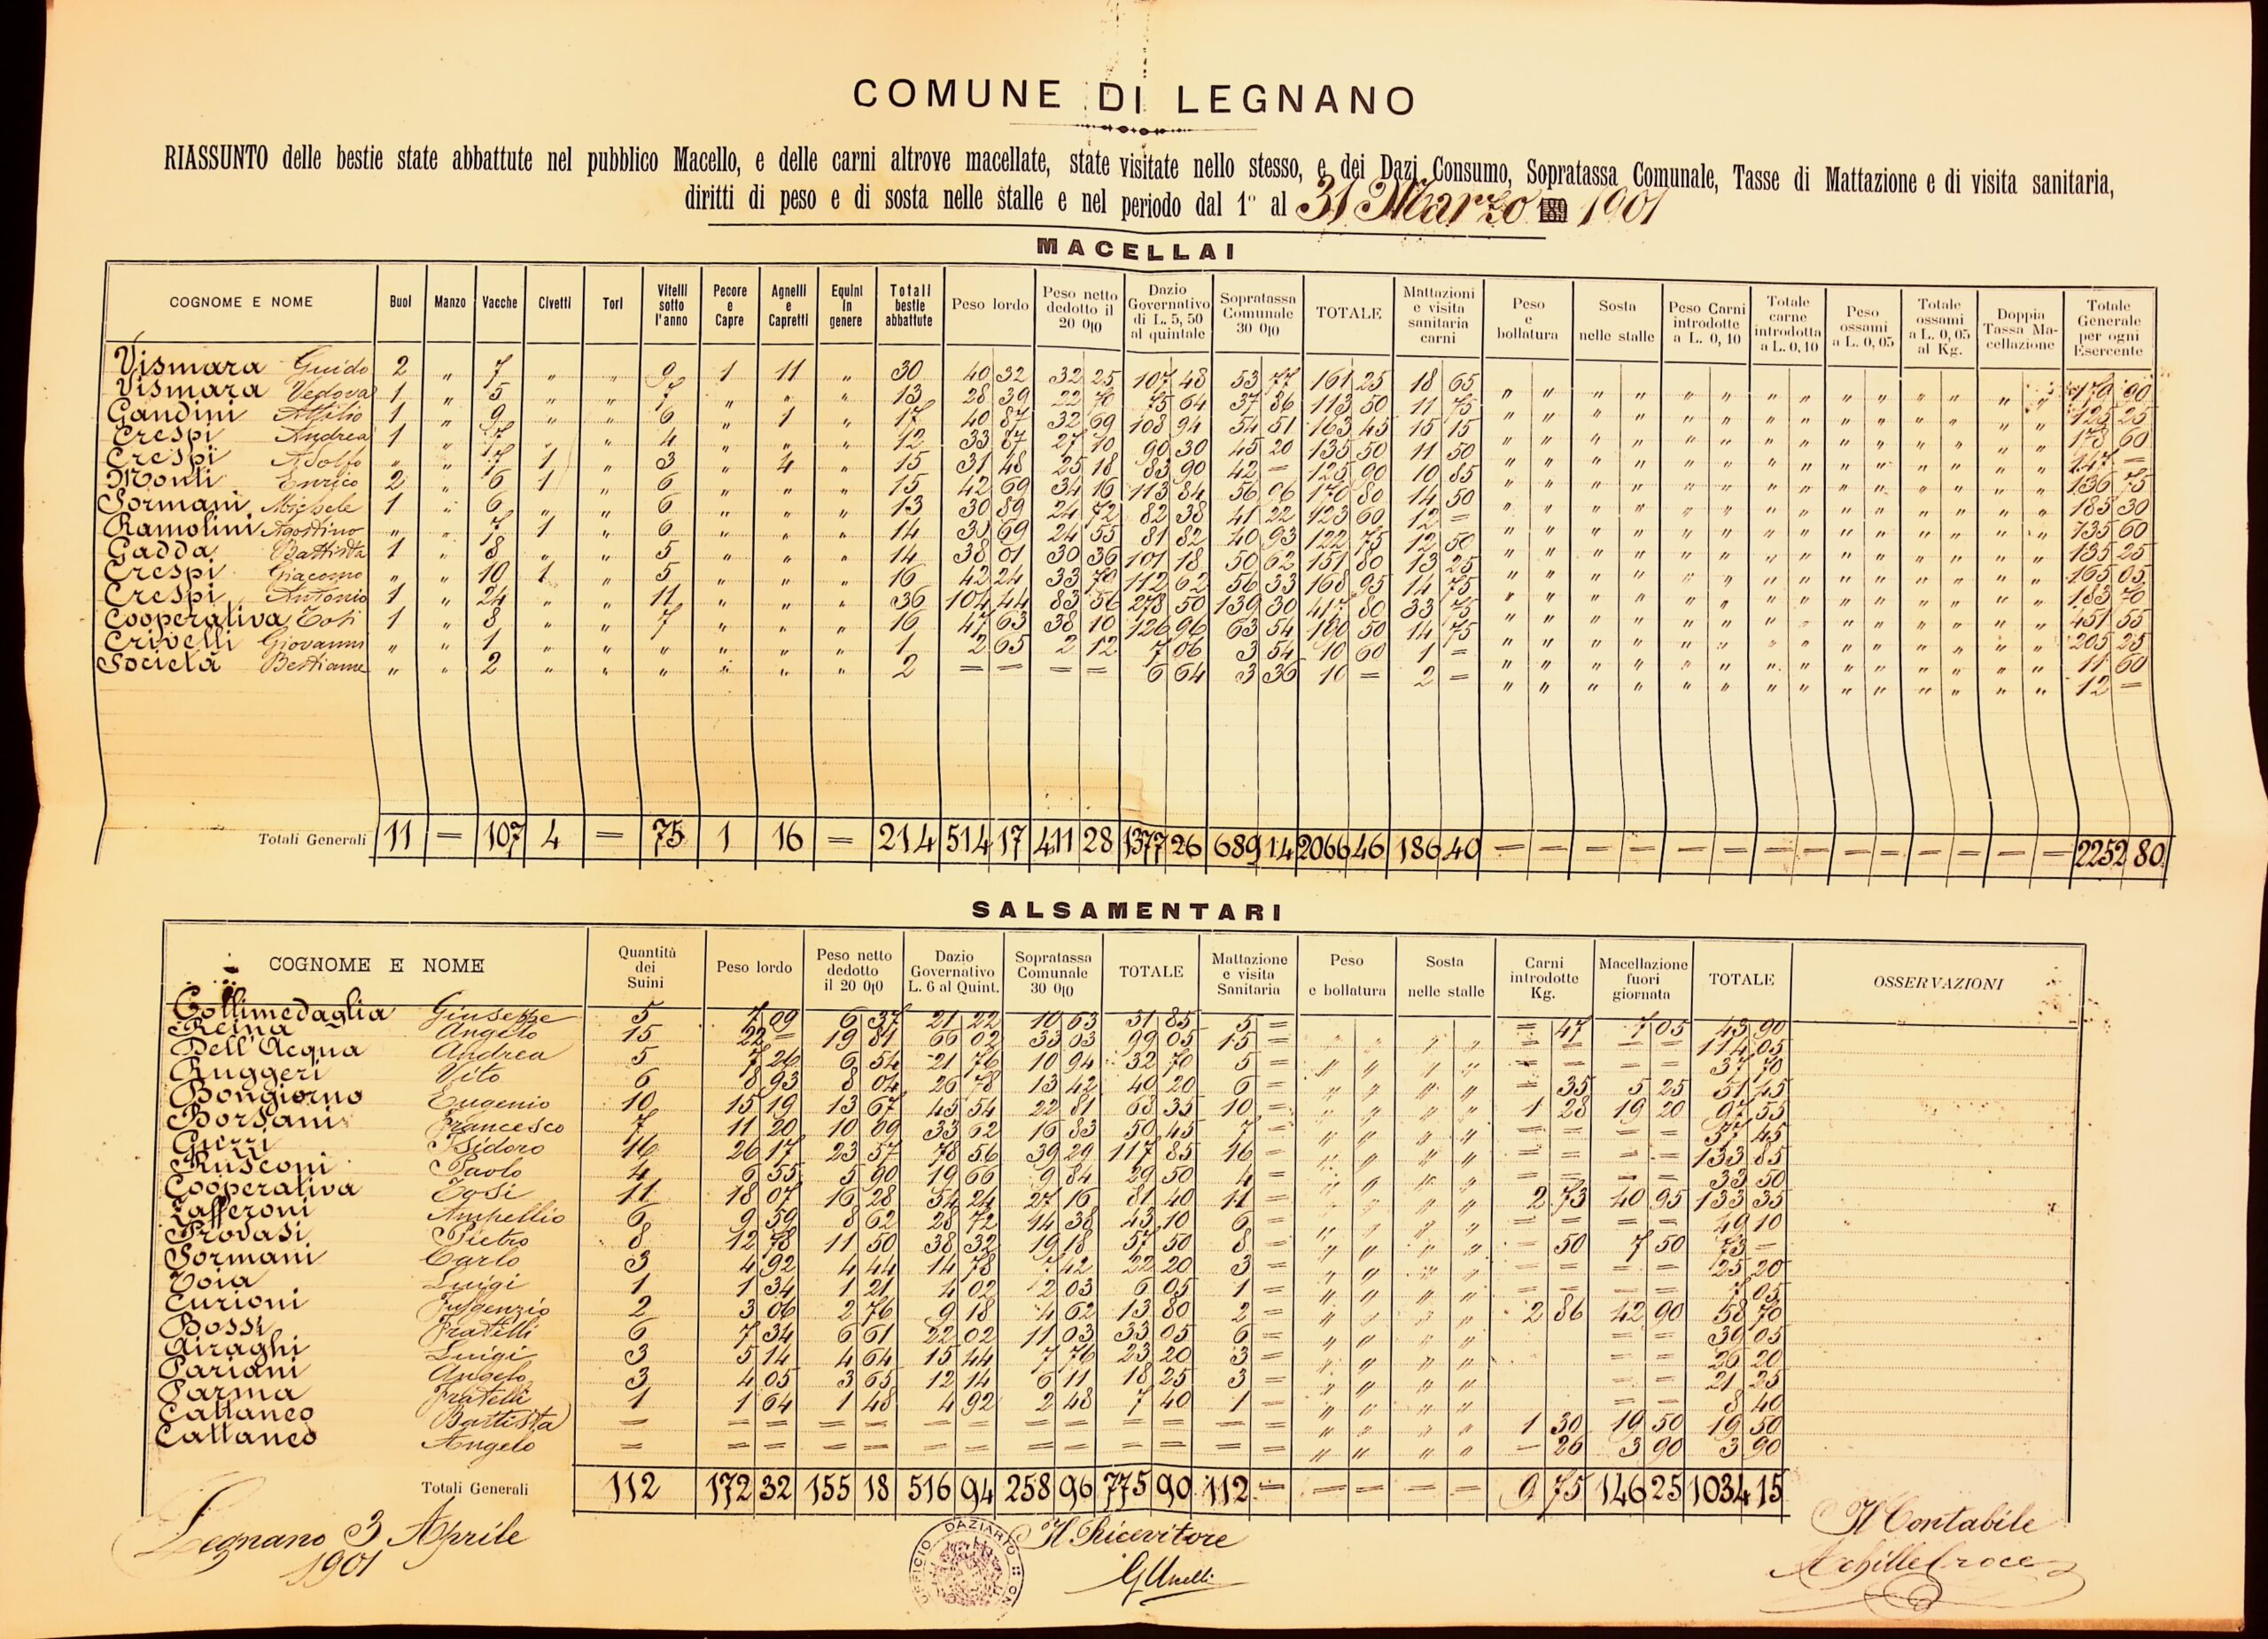 COMUNE DI LEGNANO
RIASSUNTO delle bestie state abbattute nel pubblico Macello, e delle carni altrove macellate, state visitate nello stesso, e dei Dazi Consumo, Sopratassa Comunale, Tasse di Mattazione e di visita sanitaria,
diritti di peso e di sosta nelle stalle e nel periodo dal 1° al 31 Marzo 189 1901
MACELLAI
COGNOME E NOME Buoi Manzo Vacche Civetti Tori Vitelli sotto l'anno Pecore e Capre Agnelli e Capretti Equini in genere Totali bestie abbattute Peso lordo Peso netto dedotto il 20 0|0 Dazio Governativo di L. 5, 50 al quintale Sopratassa Comunale 30 0|0 TOTALE Mattazioni e visita sanitaria carni Peso e bollatura Sosta nelle stalle Peso Carni introdotte a L. 0, 10 Totale carne introdotta a L. 0, 10 Peso ossami a L. 0, 05 Totale ossami a L. 0, 05 al Kg. Doppia Tassa Macellazione Totale Generale per ogni Esercente
Vismara Guido 2 " 7 " " 9 1 11 " 30 40 32 32 25 107 48 53 77 161 25 18 65 179 90
Vismara Vedova 1 " 5 " " 7 " " " 13 28 39 22 70 75 64 37 86 113 50 11 75 125 25
Gandini Attilio 1 " 9 " " 6 " 1 " 17 40 87 32 69 108 94 54 51 163 45 15 15 178 60
Crespi Andrea 1 " 7 " " 4 " " " 12 33 87 27 10 90 30 45 20 135 50 11 50 147 =
Crespi Adolfo " " 7 1 " 3 " 4 " 15 31 48 25 18 83 90 42 = 125 90 10 85 136 75
Monti Enrico 2 " 6 1 " 6 " " " 15 42 69 34 16 113 84 56 96 170 80 14 50 185 30
Sormani Michele 1 " 6 " " 6 " " " 13 30 89 24 72 82 38 41 22 123 60 12 = 135 60
Ramolini Agostino " " 7 1 " 6 " " " 14 30 69 24 55 81 82 40 93 122 75 12 50 135 25
Gadda Battista 1 " 8 " " 5 " " " 14 38 01 30 36 101 18 50 62 151 80 13 25 165 05
Crespi Giacomo " " 10 1 " 5 " " " 16 42 24 33 79 112 62 56 33 168 95 14 75 183 70
Crespi Antonio 1 " 24 " " 11 " " " 36 104 44 83 56 278 50 139 30 417 80 33 75 451 55
Cooperativa Tosi 1 " 8 " " 7 " " " 16 47 63 38 10 126 96 63 54 190 50 14 75 205 25
Crivelli Giovanni " " 1 " " " " " " 1 2 65 2 12 7 06 3 54 10 60 1 = 11 60
Società Bestiame " " 2 " " " " " " 2 = = = = 6 64 3 36 10 = 2 = 12 =
Totali Generali 11 = 107 4 = 75 1 16 = 214 514 17 411 28 1377 26 689 14 2066 46 186 40 2252 80
SALSAMENTARI
COGNOME E NOME Quantità dei Suini Peso lordo Peso netto dedotto il 20 0|0 Dazio Governativo L. 6 al Quint. Sopratassa Comunale 30 0|0 TOTALE Mattazione e visita Sanitaria Peso e bollatura Sosta nelle stalle Carni introdotte Kg. Macellazione fuori giornata TOTALE OSSERVAZIONI
Collimedaglia Giuseppe 5 7 09 6 37 21 22 10 63 31 85 5 = = 47 7 05 43 90
Reina Angelo 15 22 = 19 81 66 02 33 03 99 05 15 = 114 05
Dell'Acqua Andrea 5 7 26 6 54 21 76 10 94 32 70 5 = 37 70
Ruggeri Vito 6 8 93 8 04 26 78 13 42 40 20 6 = = 35 5 25 51 45
Bongiorno Eugenio 10 15 19 13 67 45 54 22 81 68 35 10 = 1 28 19 20 97 55
Borsani Francesco 7 11 20 10 09 33 62 16 83 50 45 7 = 57 45
Guerri Isidoro 16 26 17 23 57 78 56 39 29 117 85 16 = 133 85
Rusconi Paolo 4 6 55 5 90 19 66 9 84 29 50 4 = 33 50
Cooperativa Tosi 11 18 07 16 28 54 24 27 16 81 40 11 = 2 73 40 95 133 35
Zafferoni Ampellio 6 9 59 8 62 28 72 14 38 43 10 6 = 49 10
Provasi Pietro 8 12 78 11 50 38 32 19 18 57 50 8 = = 50 7 50 73 =
Sormani Carlo 3 4 92 4 44 14 78 7 42 22 20 3 = 25 20
Toia Luigi 1 1 34 1 21 4 02 2 03 6 05 1 = 7 05
Curioni Fulgenzio 2 3 06 2 76 9 18 4 62 13 80 2 = 2 86 42 90 58 70
Bossi Fratelli 6 7 34 6 61 22 02 11 03 33 05 6 = 39 05
Airaghi Luigi 3 5 14 4 64 15 44 7 76 23 20 3 = 26 20
Pariani Angelo 3 4 05 3 65 12 14 6 11 18 25 3 = 21 25
Parma Fratelli 1 1 64 1 48 4 92 2 48 7 40 1 = 8 40
Cattaneo Battista = 1 30 19 50 19 50
Cattaneo Angelo = = 26 3 90 3 90
Totali Generali 112 172 32 155 18 516 94 258 96 775 90 112 = 9 75 146 25 1034 15
Legnano 3 Aprile
1901
UFFICIO DAZIARIO
Il Ricevitore
Il Contabile
Achille Croce